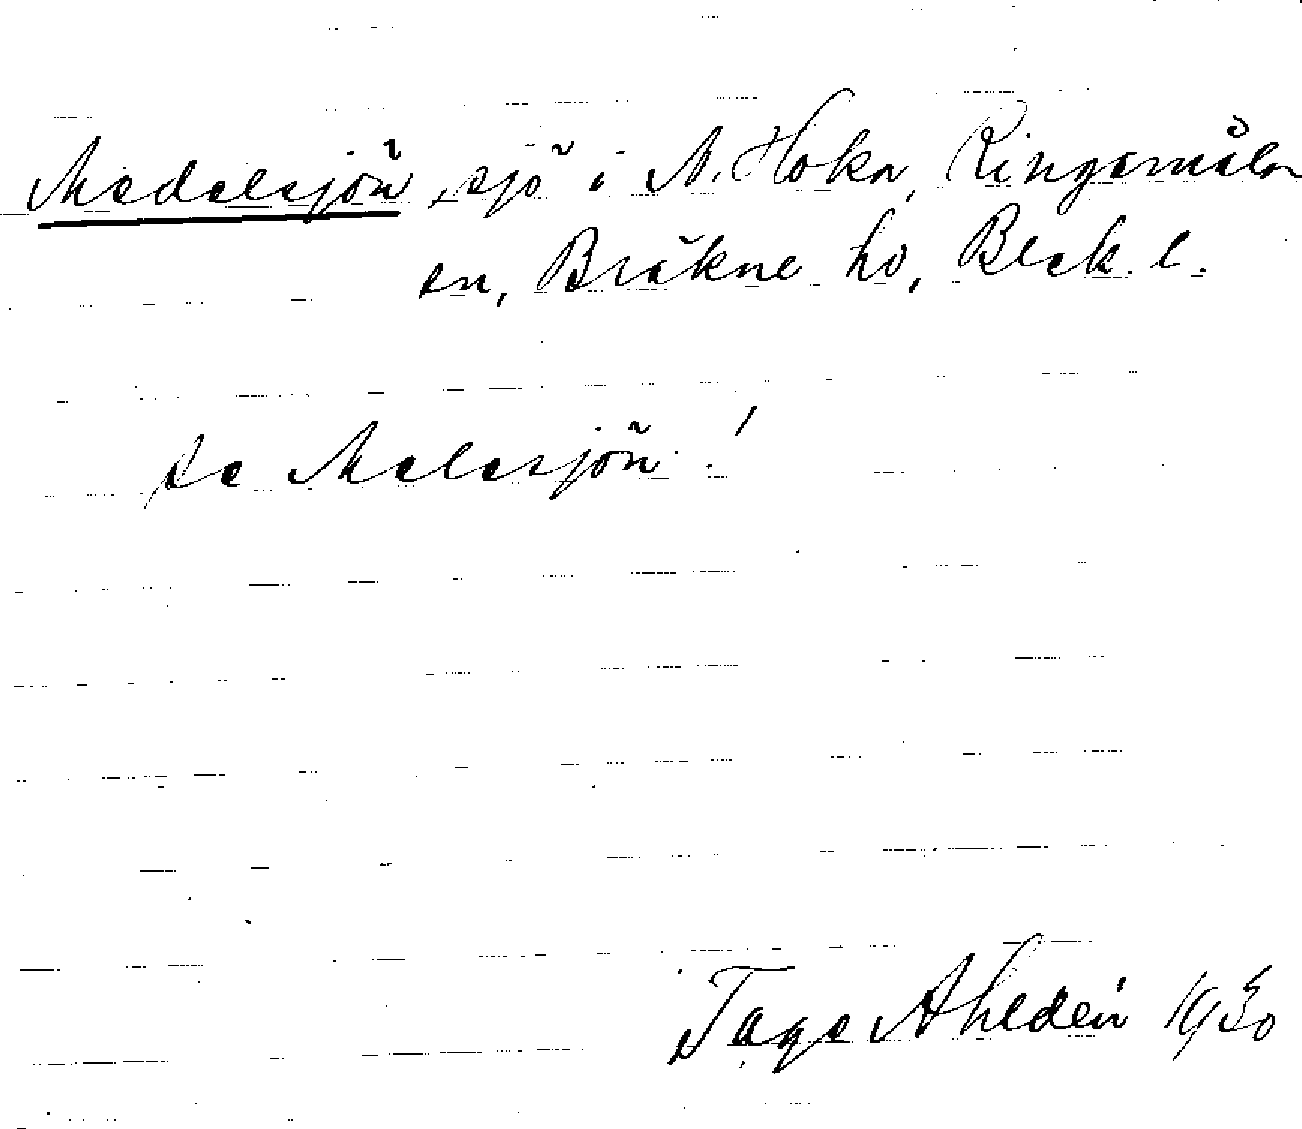 Medelsjön, sjö i N. Hoka, Ringamåla
sn, Bräkne hd, Blek. l.
se Melesjön!
Tage Ahldén 1930